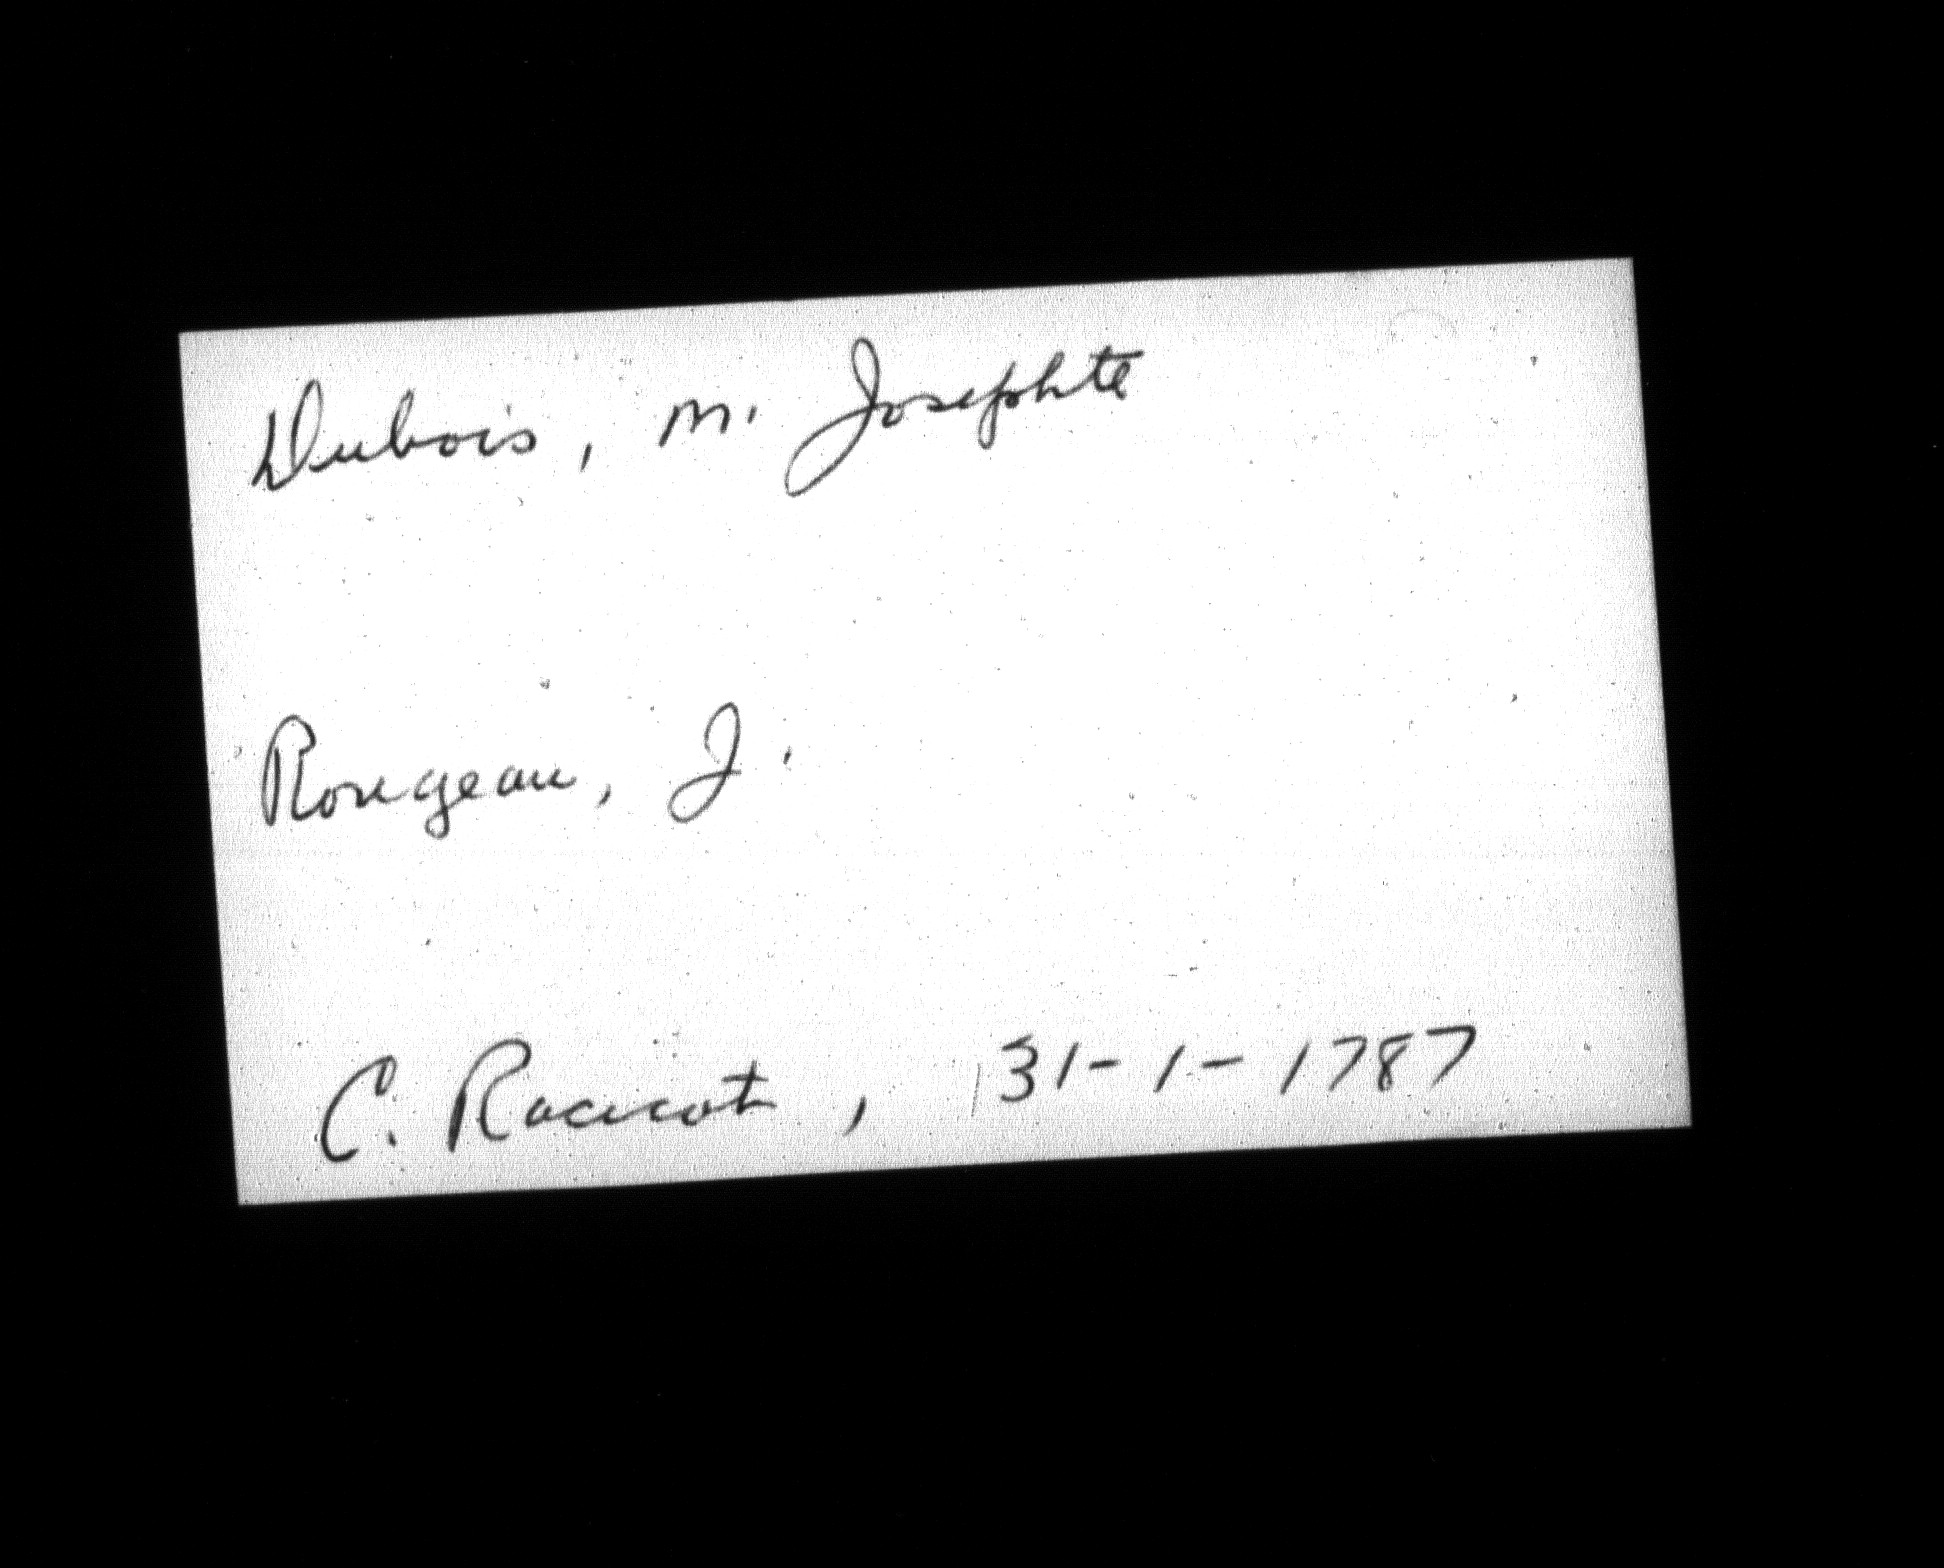 Dubois, M. Josephte
Rougeau, J.
C. Racicot, 31-1-1787